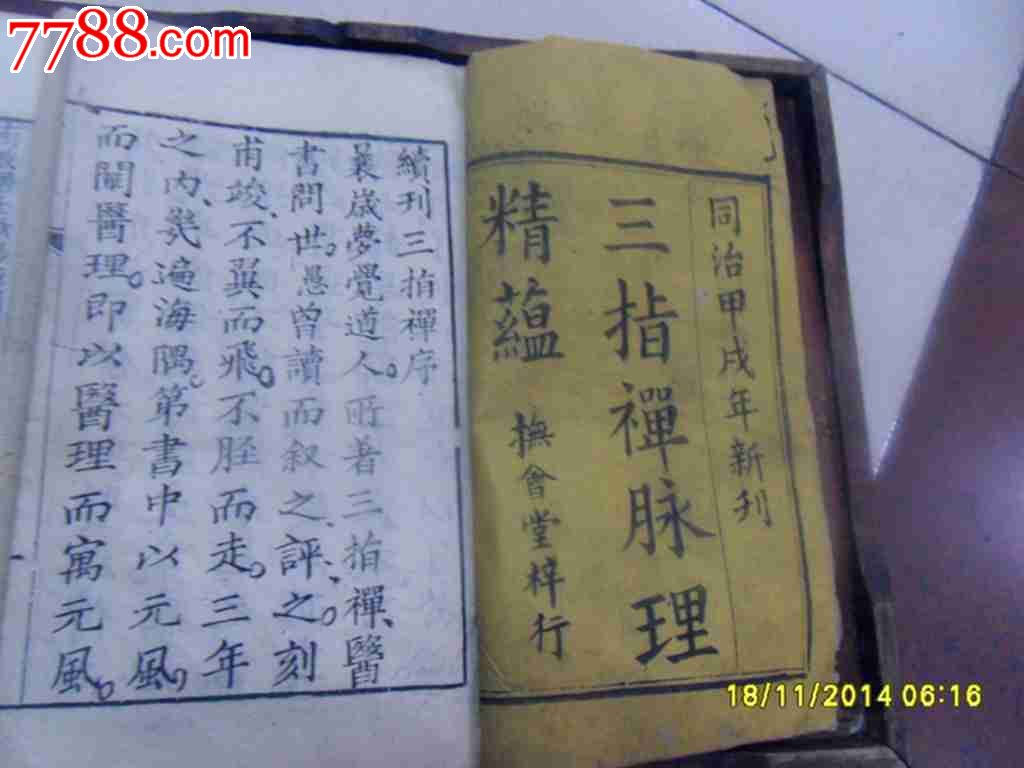 7788.com
同治甲戌年新刊
三指禪脉理
精蘊
撫會堂梓行
續刊三指禪序
曩歲夢覺道人所著三指禪醫
書問世愚曾讀而叙之評之刻
甫竣不翼而飛不胫而走三年
之内㡬遍海隅第書中以元風
而闡醫理即以醫理而寓元風
18/11/2014 06:16